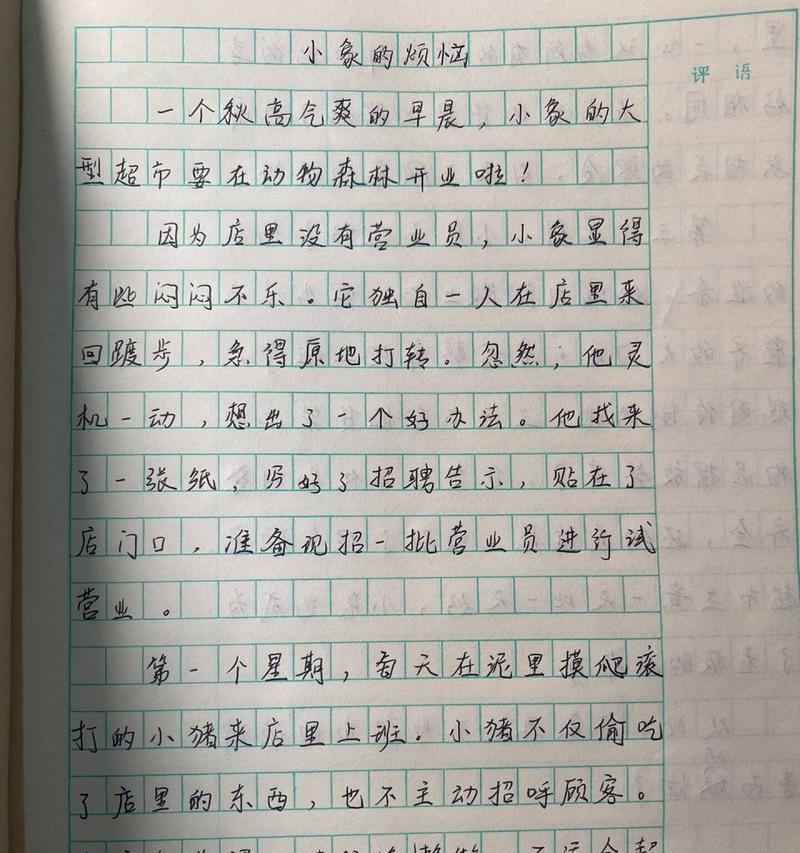 小象的烦恼
评 语
一个秋高气爽的早晨，小象的大
型超市要在动物森林开业啦！
因为店里没有营业员，小象显得
有些闷闷不乐。它独自一人在店里来
回踱步，急得原地打转。忽然，他灵
机一动，想出了一个好办法。他找来
了一张纸，写好了招聘告示，贴在了
店门口，准备现招一批营业员进行试
营业。
第一个星期，每天在泥里摸爬滚
打的小猪来店里上班。小猪不仅偷吃
了店里的东西，也不主动招呼顾客。